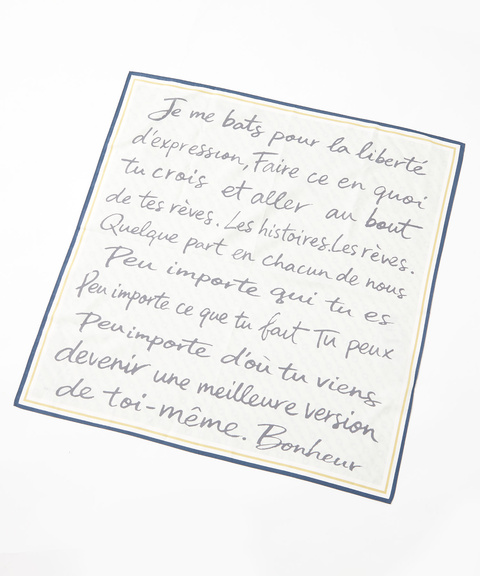 Je me bats pour la liberté
d'expression, Faire ce en quoi
tu crois et aller au bout
de tes rêves. Les histoires.Les rêves.
Quelque part en chacun de nous
Peu importe qui tu es
Peu importe ce que tu fait Tu peux
Peu importe d'où tu viens
devenir une meilleure version
de toi-même. Bonheur